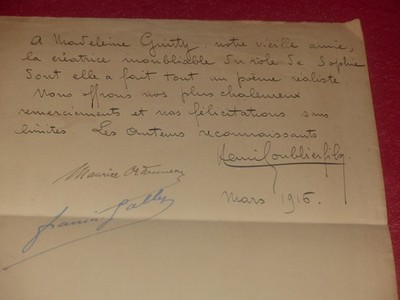 A Madeleine Guitty, notre vieille amie,
la créatrice inoubliable du rôle de Sophie
dont elle a fait tout un poème réaliste
Nous offrons nos plus chaleureux
remerciements et nos félicitations sans
limites Les Auteurs reconnaissants
Maurice
Mars 1916.